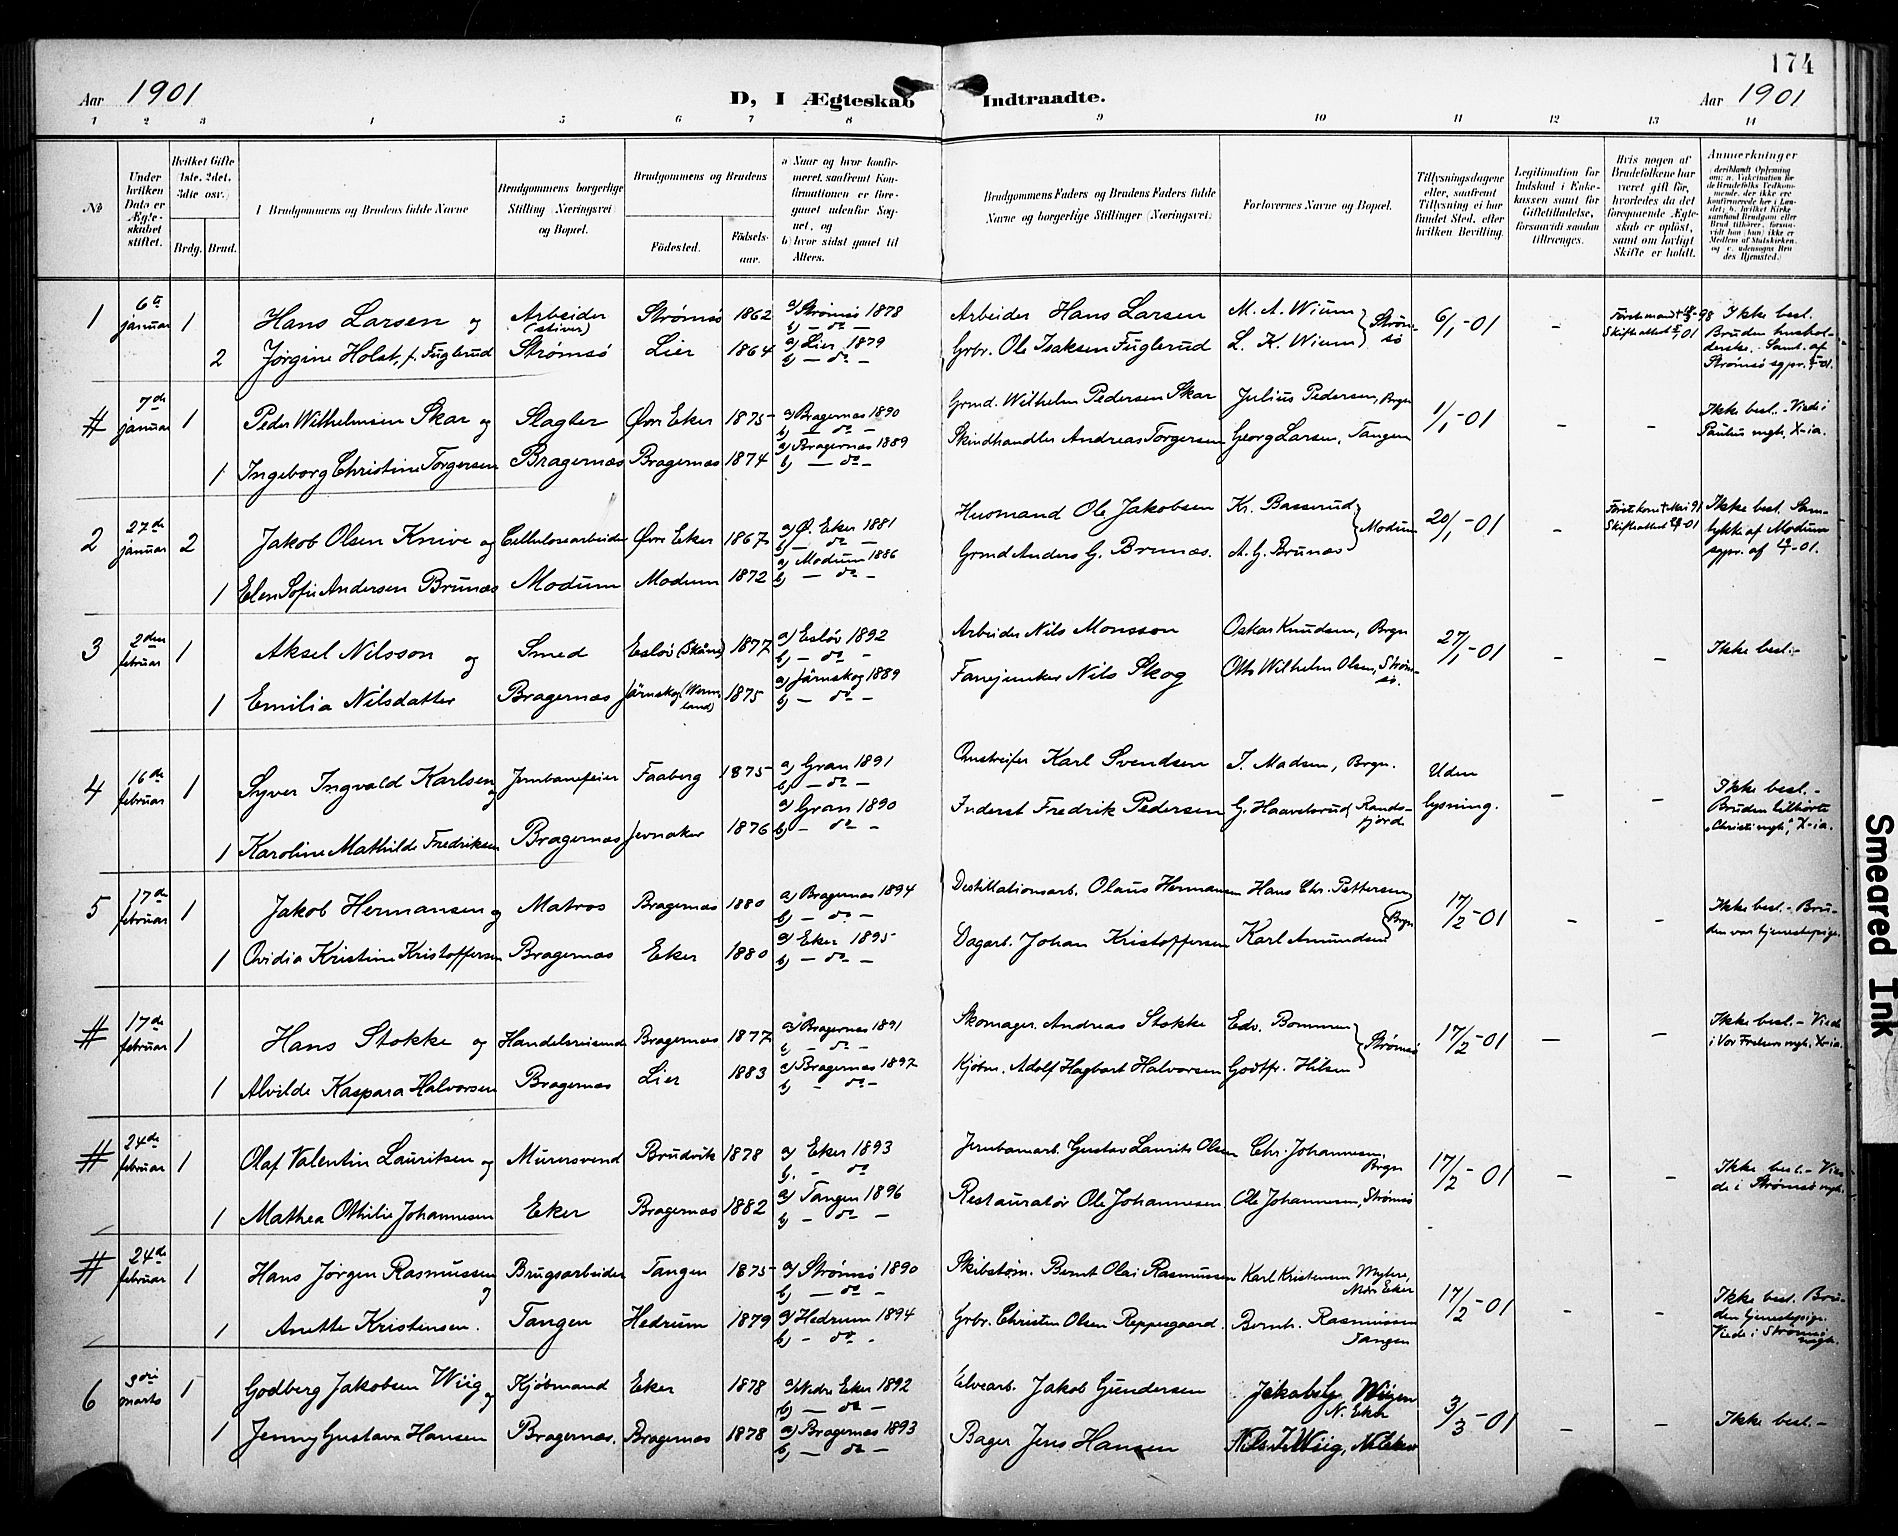 174
Aar 1901
D, I Ægteskab Indtraadte.
Aar 1901
1 2 3 4 5 6 7 8 9 10 11 12 13 14
No
Under hvilken Dato er Ægteskabet stiftet.
Hvilket Gifte (1ste, 2det, 3die osv.)
Brdg. Brud.
I Brudgommens og Brudens fulde Navne
Brudgommens borgerlige Stilling (Næringsvei) og Bopæl.
Brudgommens og Brudens
Fødested.
Fødselsaar.
a) Naar og hvor konfirmeret, saafremt Konfirmationen er foregaaet udenfor Sognet, og
b) hvor sidst gaaet til Alters.
Brudgommens Faders og Brudens Faders fulde Navne og borgerlige Stillinger (Næringsvei).
Forlovernes Navne og Bopæl.
Tillysningsdagene eller, saafremt Tillysning ei har fundet Sted, efter hvilken Bevilling.
Legitimation for Indskud i Enkekassen samt for Giftetilladelse, forsaavidt saadan tiltrænges.
Hvis nogen af Brudefolkene har været gift før, hvorledes da det foregaaende Ægteskab er opløst, samt om lovligt Skifte er holdt.
Anmærkninger
1 6te januar 1 Hans Larsen og Arbeider (stuer) Strømsø 1862 a) Strømsø 1878 b) — do — Arbeider Hans Larsen M. A. Wium } Strømsø 6/1-01 -
2 Jørgine Holst, f. Fuglerud Strømsø Lier 1864 a) Lier 1879 b) — do — Grbr. Ole Isaksen Fuglerud L. K. Wium
Ikke best. Bruden husholderske.
# 7de januar 1 Peder Wilhelmsen Skar og Slagter Øvre Eker 1875 a) Bragernæs 1890 b) — do — Grmd. Wilhelm Pedersen Skar Julius Pedersen, Brgn 1/1-01 - -
1 Ingeborg Christine Torgersen Bragernæs Bragernæs 1874 a) Bragernæs 1889 b) — do — Skindhandler Andreas Torgersen Georg Larsen, Tangen
Ikke best. - Viede i Paulus mgh. X-ia.
2 27de januar 2 Jakob Olsen Knive og Cellulosearbeider Øvre Eker 1867 a) Ø. Eker 1881 b) — do — Husmand Ole Jakobsen Kr. Basserud } Modum 20/1-01 -
1 Elen Sofie Andersen Brunæs Modum Modum 1872 a) Modum 1886 b) — do — Grmd Anders G. Brunæs. A. G. Brunæs
Ikke best.
3 2den februar 1 Aksel Nilsson og Smed Esløv (Skåne) 1877 a) Esløv 1892 b) — do — Arbeider Nils Monsson Oskar Knudsen, Brgn 27/1-01 - -
1 Emilia Nilsdatter Bragernæs Järnskog (Wermland) 1875 a) Järnskog 1889 b) — do — Fanejunker Nils Skog Otto Wilhelm Olsen, Strømsø.
Ikke best.-
4 16de februar 1 Syver Ingvald Karlsen og Jernbanefeier Faaberg 1875 a) Gran 1891 b) — do — Omstreifer Karl Svendsen J. Madsen, Brgn. Uden - -
1 Karoline Mathilde Fredriksen Bragernæs Jevnaker 1876 a) Gran 1890 b) — do — Inderst Fredrik Pedersen G. Haavelsrud, Randsfjord lysning.
Ikke best. - Bruden tilhörte „Christi mgh", X-ia.
5 17de februar 1 Jakob Hermansen og Matros Bragernæs 1880 a) Bragernæs 1894 b) — do — Destillationsarb. Olaus Hermansen Hans Chr. Pettersen } Brgn 17/2-01 - -
1 Ovidia Kristine Kristoffersen Bragernæs Eker 1880 a) Eker 1895 b) — do — Dagarb. Johan Kristoffersen Karl Amundsen
Ikke best. - Bruden var tjenestepige.
# 17de februar 1 Hans Stokke og Handelsreisende Bragernæs 1877 a) Bragernæs 1891 b) — do — Skomager. Andreas Stokke Edv. Bommen } Strømsø 17/2-01 - -
1 Alvilde Kaspara Halvorsen Bragernæs Lier 1883 a) Bragernæs 1897 b) — do — Kjøbm. Adolf Hagbart Halvorsen Godtfr. Hilsen
Ikke best. - Viede i Vor Frelsers mgh. X-ia.
# 24de februar 1 Olaf Valentin Lauritsen og Murersvend Brudvik 1878 a) Eker 1893 b) - do Jernbanearb. Gustav Laurits Olsen Chr. Johannesen, Brgn 17/2-01 - -
1 Mathea Othilie Johannesen Eker Bragernæs 1882 a) Tangen 1896 b) — do — Restauratør Ole Johannesen. Ole Johannesen, Strømsø
Ikke best. - Viede i Strømsø mgh.
# 24de februar 1 Hans Jørgen Rasmussen og Brugsarbeider Tangen 1875 a) Strømsø 1890 b) — do — Skibstøm. Bernt Olai Rasmussen Karl Kristensen Myhre, Eker 17/2-01 - -
1 Anette Kristensen. Tangen Hedrum 1879 a) Hedrum 1894 b) - do - Grbr. Christen Olsen Reppesgaard. Bernh. Rasmussen Tangen
Ikke best. Bruden tjenestepige. Viede i Strømsø mgh.
6 3die marts 1 Godberg Jakobsen Wiig og Kjøbmand Eker 1878 a) Nedre Eker 1892 b) — do — Elvearb. Jakob Gundersen Wiigen N. Eker 3/3-01 - -
1 Jenny Gustava Hansen Bragernæs. Bragernæs 1878 a) Bragernæs 1893 b) — do — Bager Jens Hansen Nils J. Wiig, N. Eker
Ikke best.-
Smeared Ink